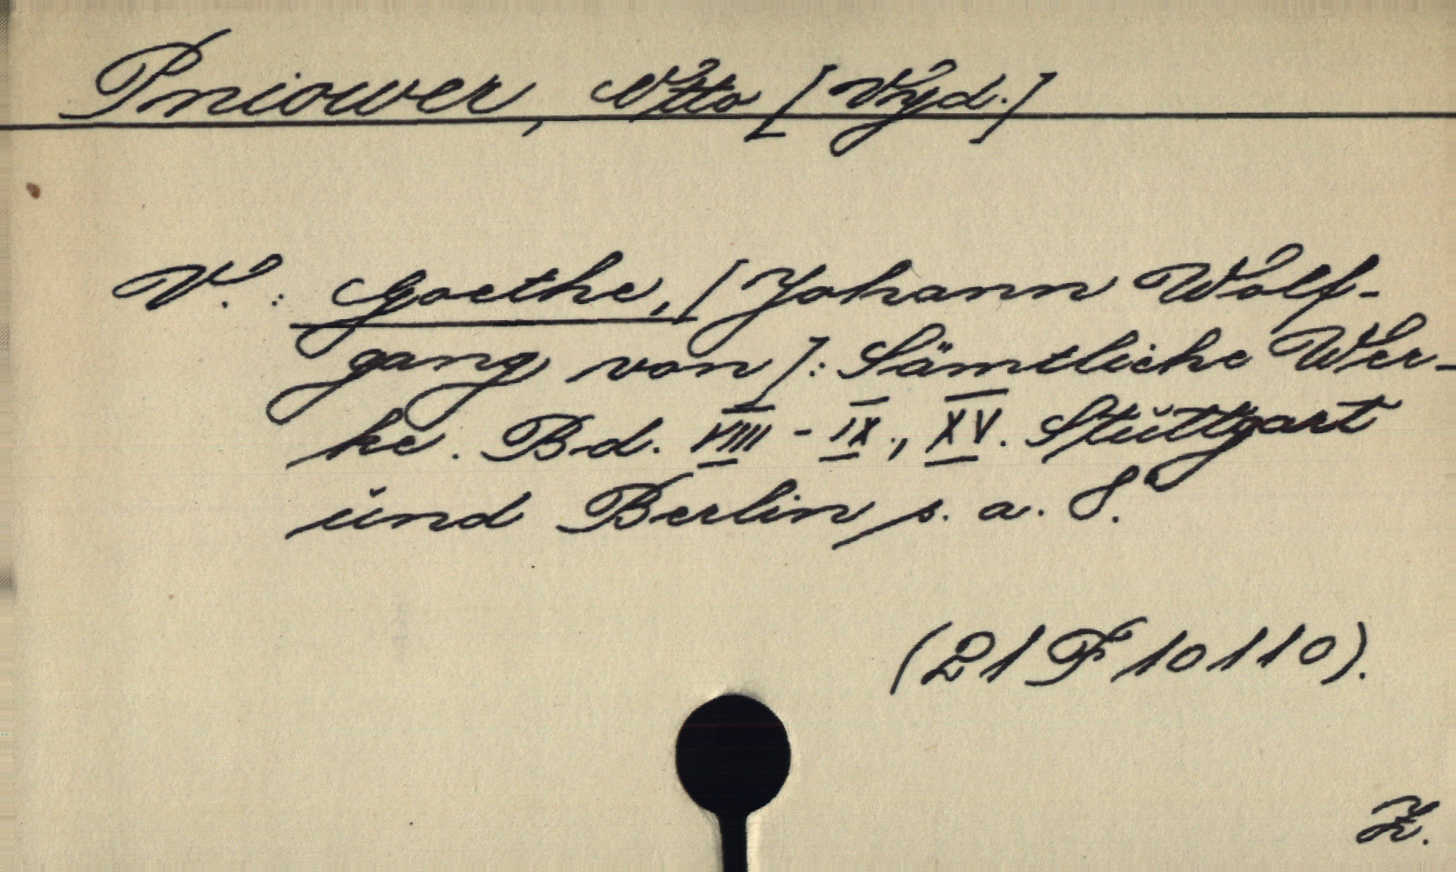 Pniower, Otto [Vyd.]
V.: Goethe, [Johann Wolf-
gang von]: Sämtliche Wer-
ke. Bd. VIII - IX., XV. Stuttgart
und Berlin s. a. 8°.
(21 F 10110).
Z.